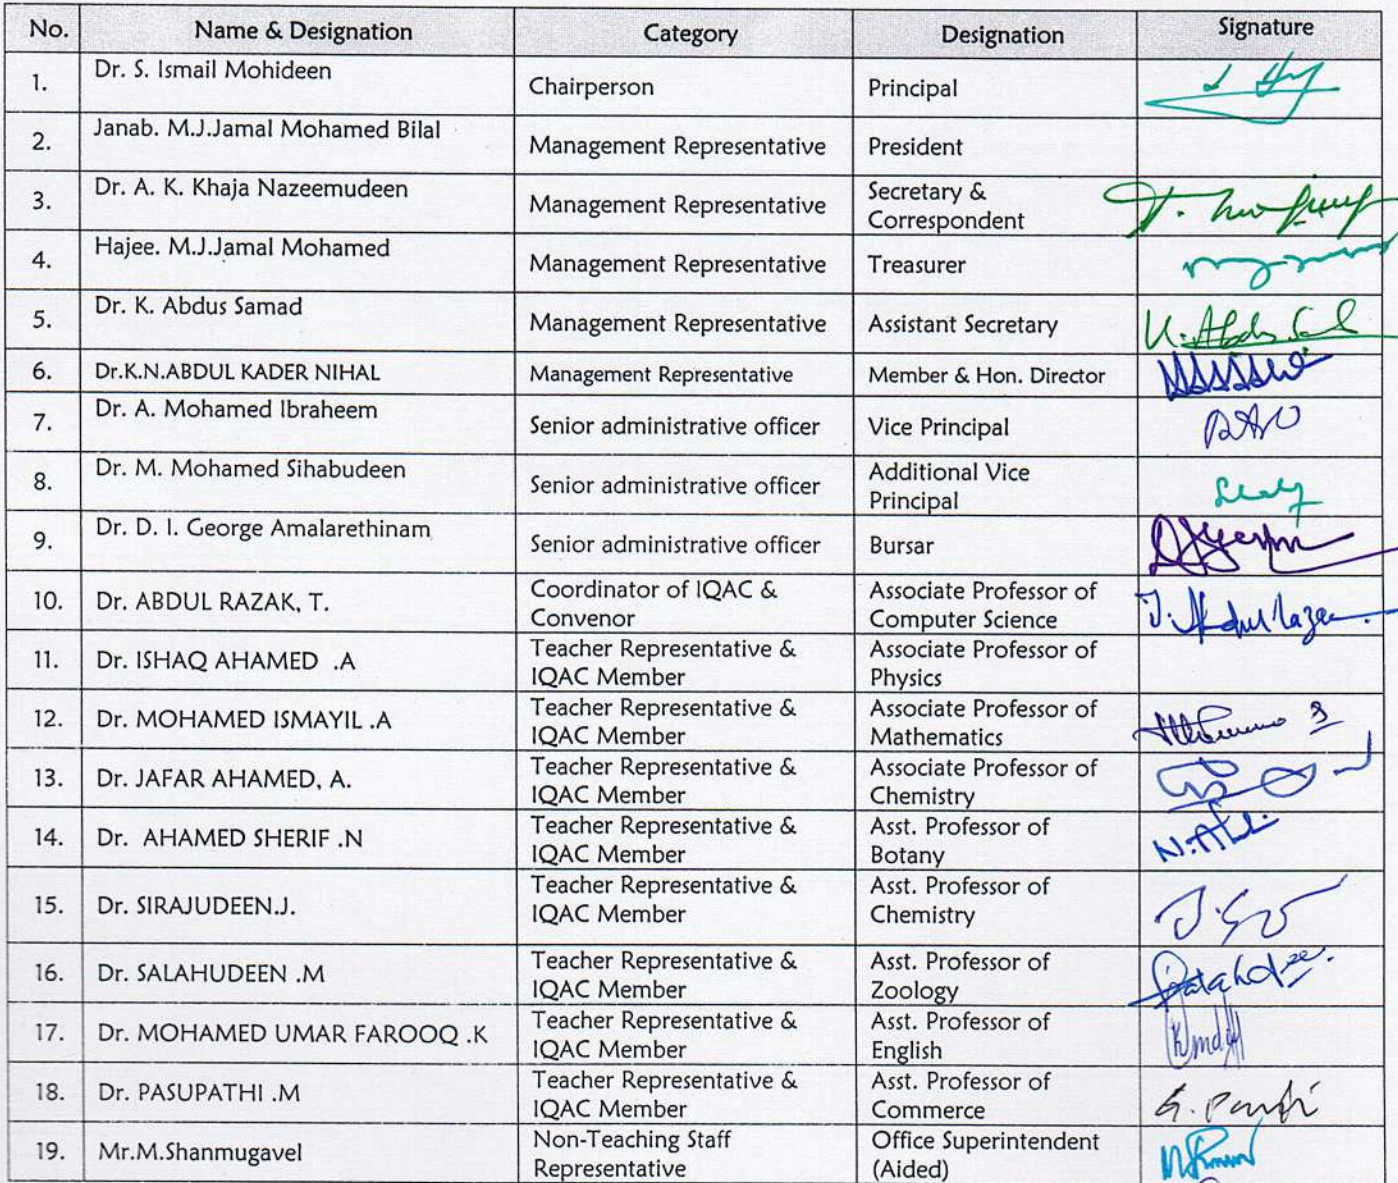 No. Name & Designation Category Designation Signature
1. Dr. S. Ismail Mohideen Chairperson Principal
2. Janab. M.J.Jamal Mohamed Bilal Management Representative President
3. Dr. A. K. Khaja Nazeemudeen Management Representative Secretary &
Correspondent
4. Hajee. M.J.Jamal Mohamed Management Representative Treasurer
5. Dr. K. Abdus Samad Management Representative Assistant Secretary
6. Dr.K.N.ABDUL KADER NIHAL Management Representative Member & Hon. Director
7. Dr. A. Mohamed Ibraheem Senior administrative officer Vice Principal
8. Dr. M. Mohamed Sihabudeen Senior administrative officer Additional Vice
Principal
9. Dr. D. I. George Amalarethinam Senior administrative officer Bursar
10. Dr. ABDUL RAZAK, T. Coordinator of IQAC & Associate Professor of
Convenor Computer Science
11. Dr. ISHAQ AHAMED .A Teacher Representative & Associate Professor of
IQAC Member Physics
12. Dr. MOHAMED ISMAYIL .A Teacher Representative & Associate Professor of
IQAC Member Mathematics
13. Dr. JAFAR AHAMED, A. Teacher Representative & Associate Professor of
IQAC Member Chemistry
14. Dr. AHAMED SHERIF .N Teacher Representative & Asst. Professor of
IQAC Member Botany
15. Dr. SIRAJUDEEN.J. Teacher Representative & Asst. Professor of
IQAC Member Chemistry
16. Dr. SALAHUDEEN .M Teacher Representative & Asst. Professor of
IQAC Member Zoology
17. Dr. MOHAMED UMAR FAROOQ .K Teacher Representative & Asst. Professor of
IQAC Member English
18. Dr. PASUPATHI .M Teacher Representative & Asst. Professor of
IQAC Member Commerce
19. Mr.M.Shanmugavel Non-Teaching Staff Office Superintendent
Representative (Aided)